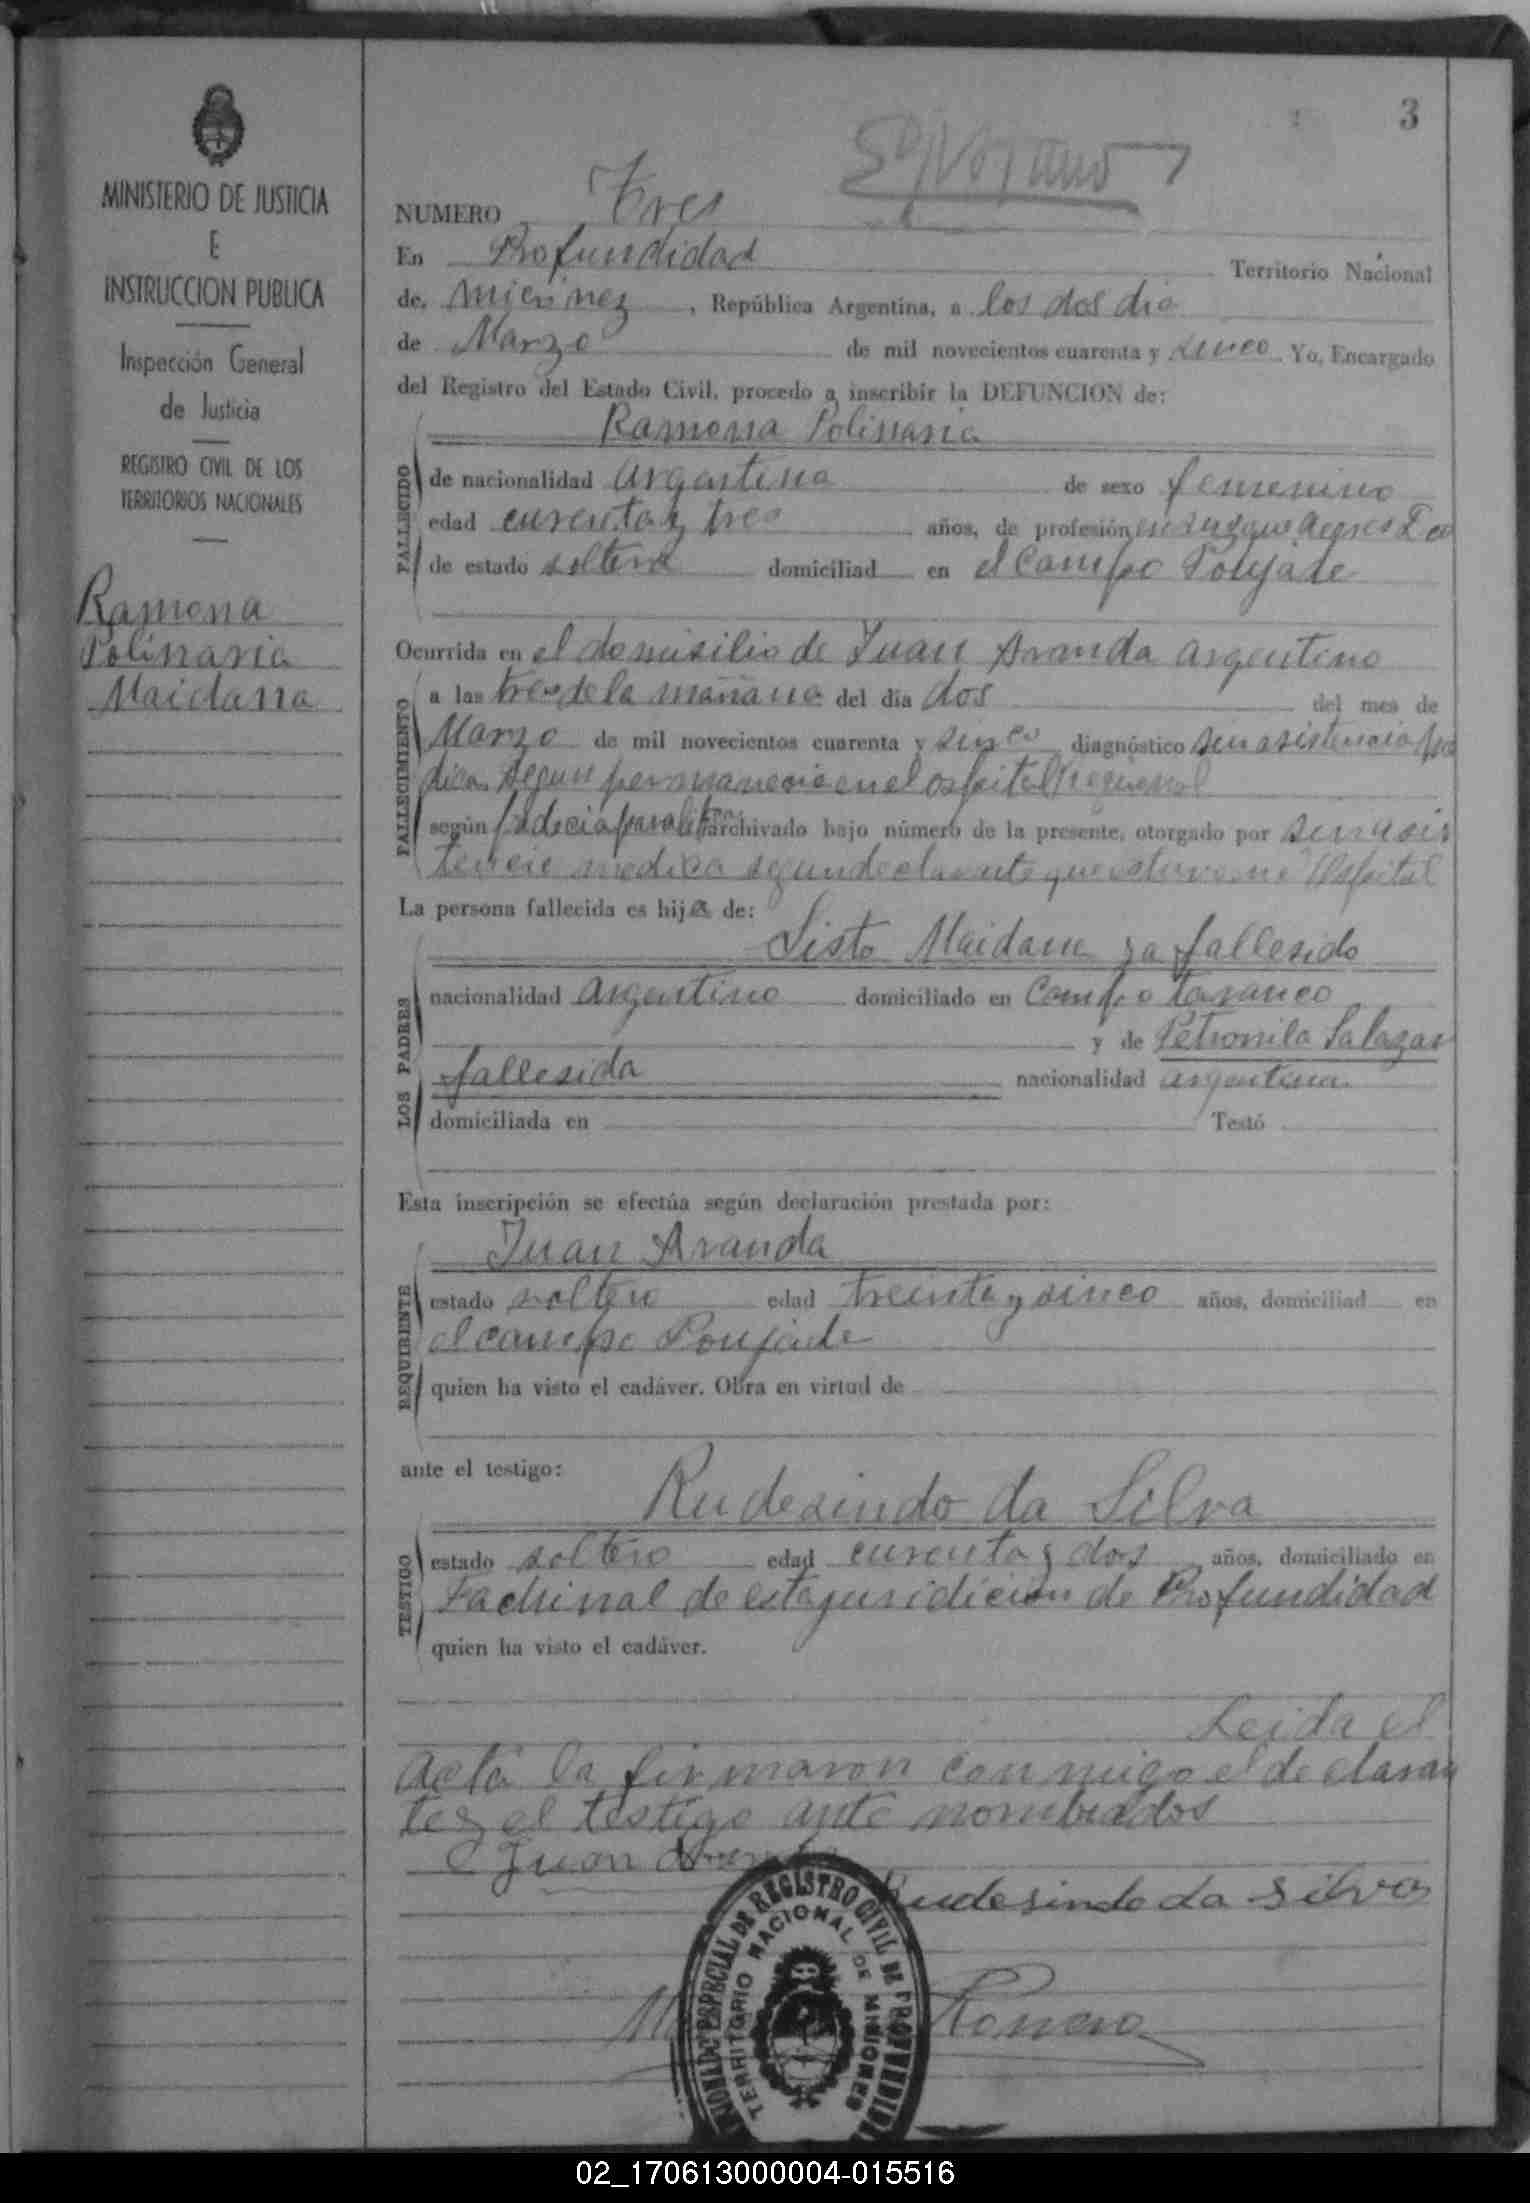 3
MINISTERIO DE JUSTICIA
E
INSTRUCCION PUBLICA
Inspección General
de Justicia
REGISTRO CIVIL DE LOS
TERRITORIOS NACIONALES
Ramona
Polinaria
Maidana
NUMERO Tres
En Profundidad Territorio Nacional
de, República Argentina, a los dos dia
de Marzo de mil novecientos cuarenta y sinco Yo, Encargado
del Registro del Estado Civil, procedo a inscribir la DEFUNCION de:
Ramona Polinaria
FALLECIDO
de nacionalidad argentina de sexo femenino
edad curenta y tres años, de profesión
de estado soltera domiciliad en el Campo Poujade
Ocurrida en el domisilio de Juan Aranda argentino
FALLECIMIENTO
a las tres de la mañana del día dos del mes de
Marzo de mil novecientos cuarenta y sinco diagnóstico sin asistencia me
dica segun permanecio en el ospital
según padecia archivado bajo número de la presente, otorgado por sin asis
tencia medica segun declarante que estuvo Ospital
La persona fallecida es hija de:
Sisto Maidana ya fallesido
LOS PADRES
nacionalidad argentino domiciliado en Campo
y de Petronila Salazar
fallesida nacionalidad argentina
domiciliada en Testó
Esta inscripción se efectúa según declaración prestada por:
Juan Aranda
REQUIRENTE
estado soltero edad treinta y sinco años, domiciliad en
el campo Poujade
quien ha visto el cadáver. Obra en virtud de
ante el testigo:
Rudesindo da Silva
TESTIGO
estado soltero edad curenta y dos años, domiciliado en
Fachinal de esta juridicion de Profundidad
quien ha visto el cadáver.
Leida el
Acta la firmaron conmigo el declaran
te y el testigo ante nombrados
Juan Aranda
Rudesindo da silva
Romero
ESPECIAL DE REGISTRO CIVIL DE PROFUNDIDAD
TERRITORIO NACIONAL DE MISIONES
02_170613000004-015516